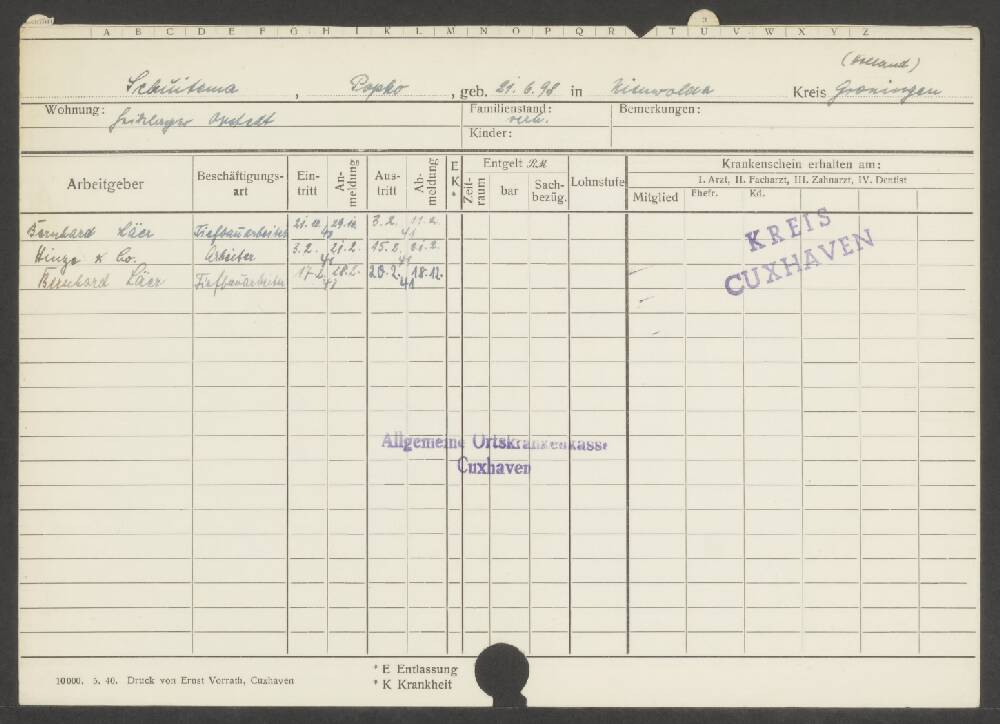 A B C D E F G H I K L M N O P Q R T U V W X Y Z
(Holland)
Schuitema , Popko , geb. 21.6.98 in Nieuwolda Kreis Groningen
Wohnung: Familienstand: verh. Bemerkungen:
Kinder:
Arbeitgeber Beschäftigungsart Eintritt Anmeldung Austritt Abmeldung E K * Entgelt RM Zeitraum bar Sachbezüg. Lohnstufe Krankenschein erhalten am:
I. Arzt, II. Facharzt, III. Zahnarzt, IV. Dentist
Mitglied Ehefr. Kd.
Bernhard Läer Tiefbauarbeiter 3.2. 11.2. 41
Hinze & Co. Arbeiter 3.2. 41 21.2. 15.2. 41 21.2.
Bernhard Läer Tiefbauarbeiter 17.2. 28.2. 20.2. 41 18.12.
KREIS
CUXHAVEN
Allgemeine Ortskrankenkasse
Cuxhaven
* E Entlassung
* K Krankheit
10000. 5. 40. Druck von Ernst Vorrath, Cuxhaven